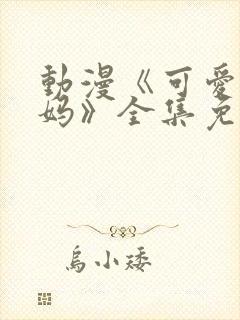 動漫《可愛
妈》全集免
烏小矮